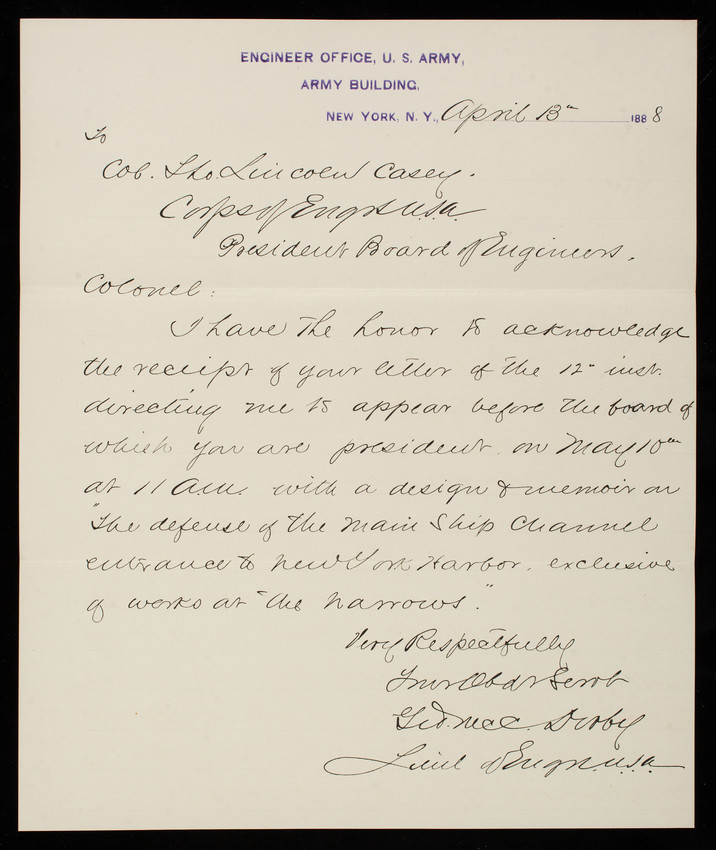 ENGINEER OFFICE, U. S. ARMY,
ARMY BUILDING,
NEW YORK, N. Y., April 13th 1888
To
Col. Tho. Lincoln Casey.
Corps of Engrs U.S.A.
President Board of Engineers.
Colonel:
I have the honor to acknowledge
the receipt of your letter of the 12th inst.
directing me to appear before the board of
which you are president on May 10th
at 11 A.M. with a design & memoir on
"The defense of the Main Ship Channel
entrance to New York Harbor, exclusive
of works at the Narrows."
Very Respectfully
Your Obdt Servt
Geo. McC. Derby
Lieut of Engrs. U.S.A.